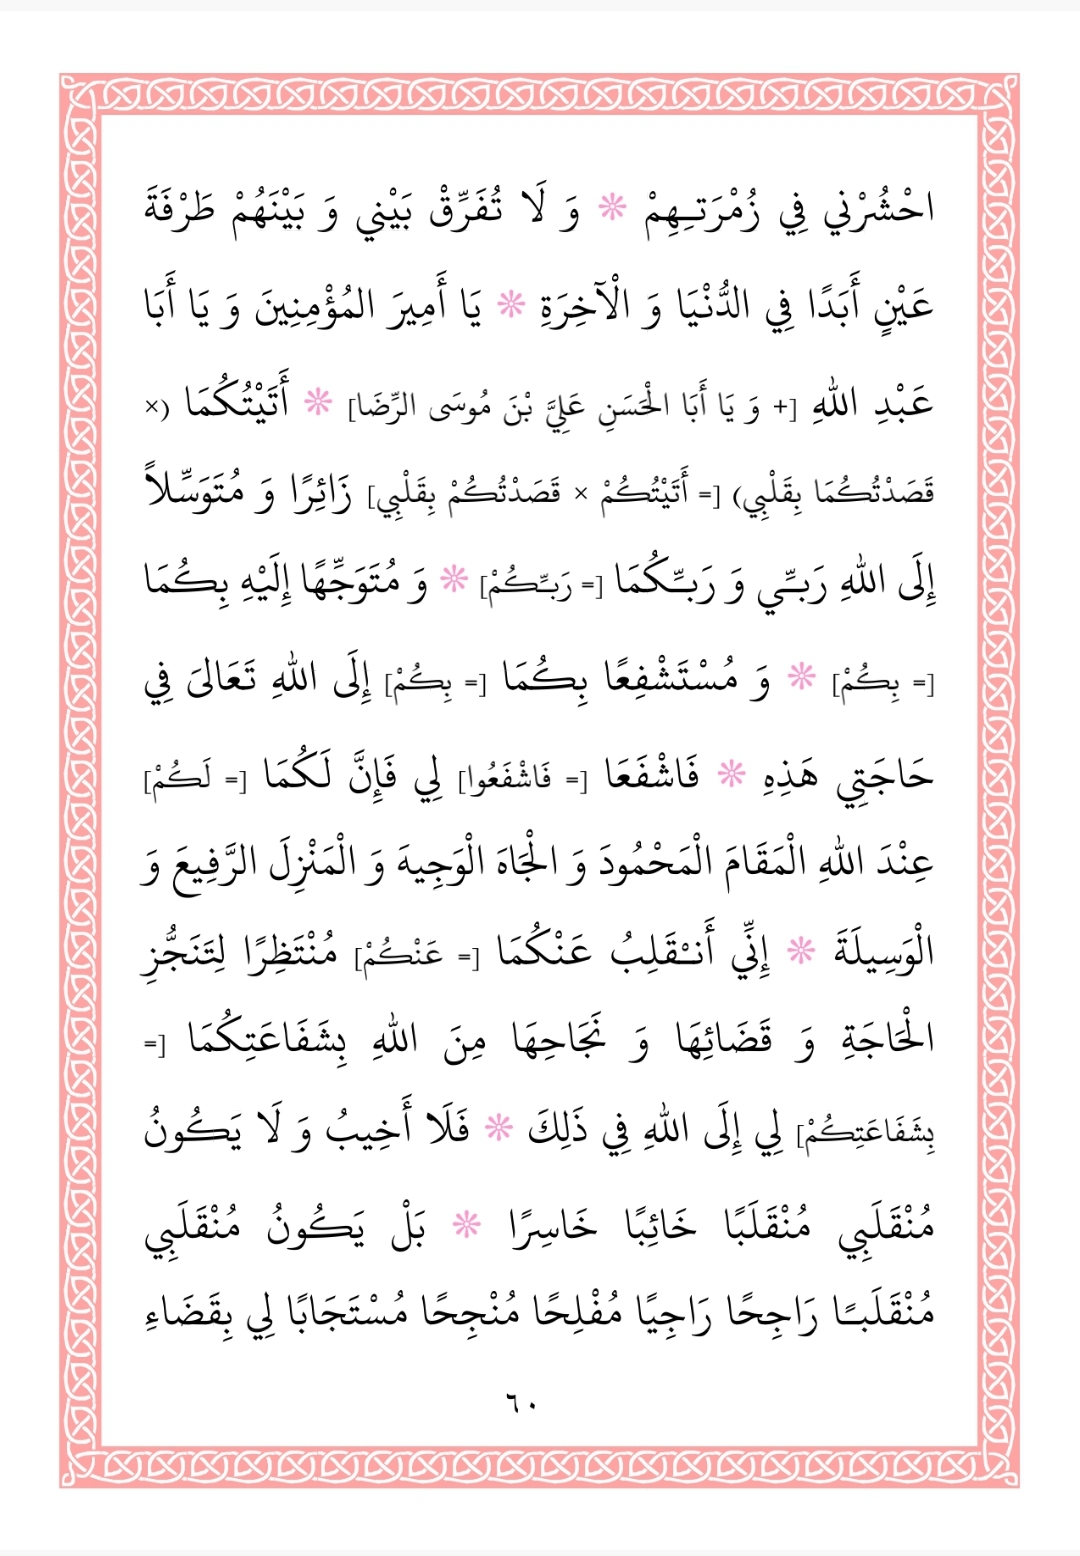 احْشُرْنِي فِي زُمْرَتِهِمْ ❊ وَ لَا تُفَرِّقْ بَيْنِي وَ بَيْنَهُمْ طَرْفَةَ
عَيْنٍ أَبَدًا فِي الدُّنْيَا وَ الْآخِرَةِ ❊ يَا أَمِيرَ المُؤْمِنِينَ وَ يَا أَبَا
عَبْدِ اللهِ [+ وَ يَا أَبَا الْحَسَنِ عَلِيَّ بْنَ مُوسَى الرِّضَا] ❊ أَتَيْتُكُمَا (×
قَصَدْتُكُمَا بِقَلْبِي) [= أَتَيْتُكُمْ × قَصَدْتُكُمْ بِقَلْبِي] زَائِرًا وَ مُتَوَسِّلاً
إِلَى اللهِ رَبِّي وَ رَبِّكُمَا [= رَبِّكُمْ] ❊ وَ مُتَوَجِّهًا إِلَيْهِ بِكُمَا
[= بِكُمْ] ❊ وَ مُسْتَشْفِعًا بِكُمَا [= بِكُمْ] إِلَى اللهِ تَعَالَى فِي
حَاجَتِي هَذِهِ ❊ فَاشْفَعَا [= فَاشْفَعُوا] لِي فَإِنَّ لَكُمَا [= لَكُمْ]
عِنْدَ اللهِ الْمَقَامَ الْمَحْمُودَ وَ الْجَاهَ الْوَجِيهَ وَ الْمَنْزِلَ الرَّفِيعَ وَ
الْوَسِيلَةَ ❊ إِنِّي أَنْقَلِبُ عَنْكُمَا [= عَنْكُمْ] مُنْتَظِرًا لِتَنَجُّزِ
الْحَاجَةِ وَ قَضَائِهَا وَ نَجَاحِهَا مِنَ اللهِ بِشَفَاعَتِكُمَا [=
بِشَفَاعَتِكُمْ] لِي إِلَى اللهِ فِي ذَلِكَ ❊ فَلَا أَخِيبُ وَ لَا يَكُونُ
مُنْقَلَبِي مُنْقَلَبًا خَائِبًا خَاسِرًا ❊ بَلْ يَكُونُ مُنْقَلَبِي
مُنْقَلَبًا رَاجِحًا رَاجِيًا مُفْلِحًا مُنْجِحًا مُسْتَجَابًا لِي بِقَضَاءِ
٦٠